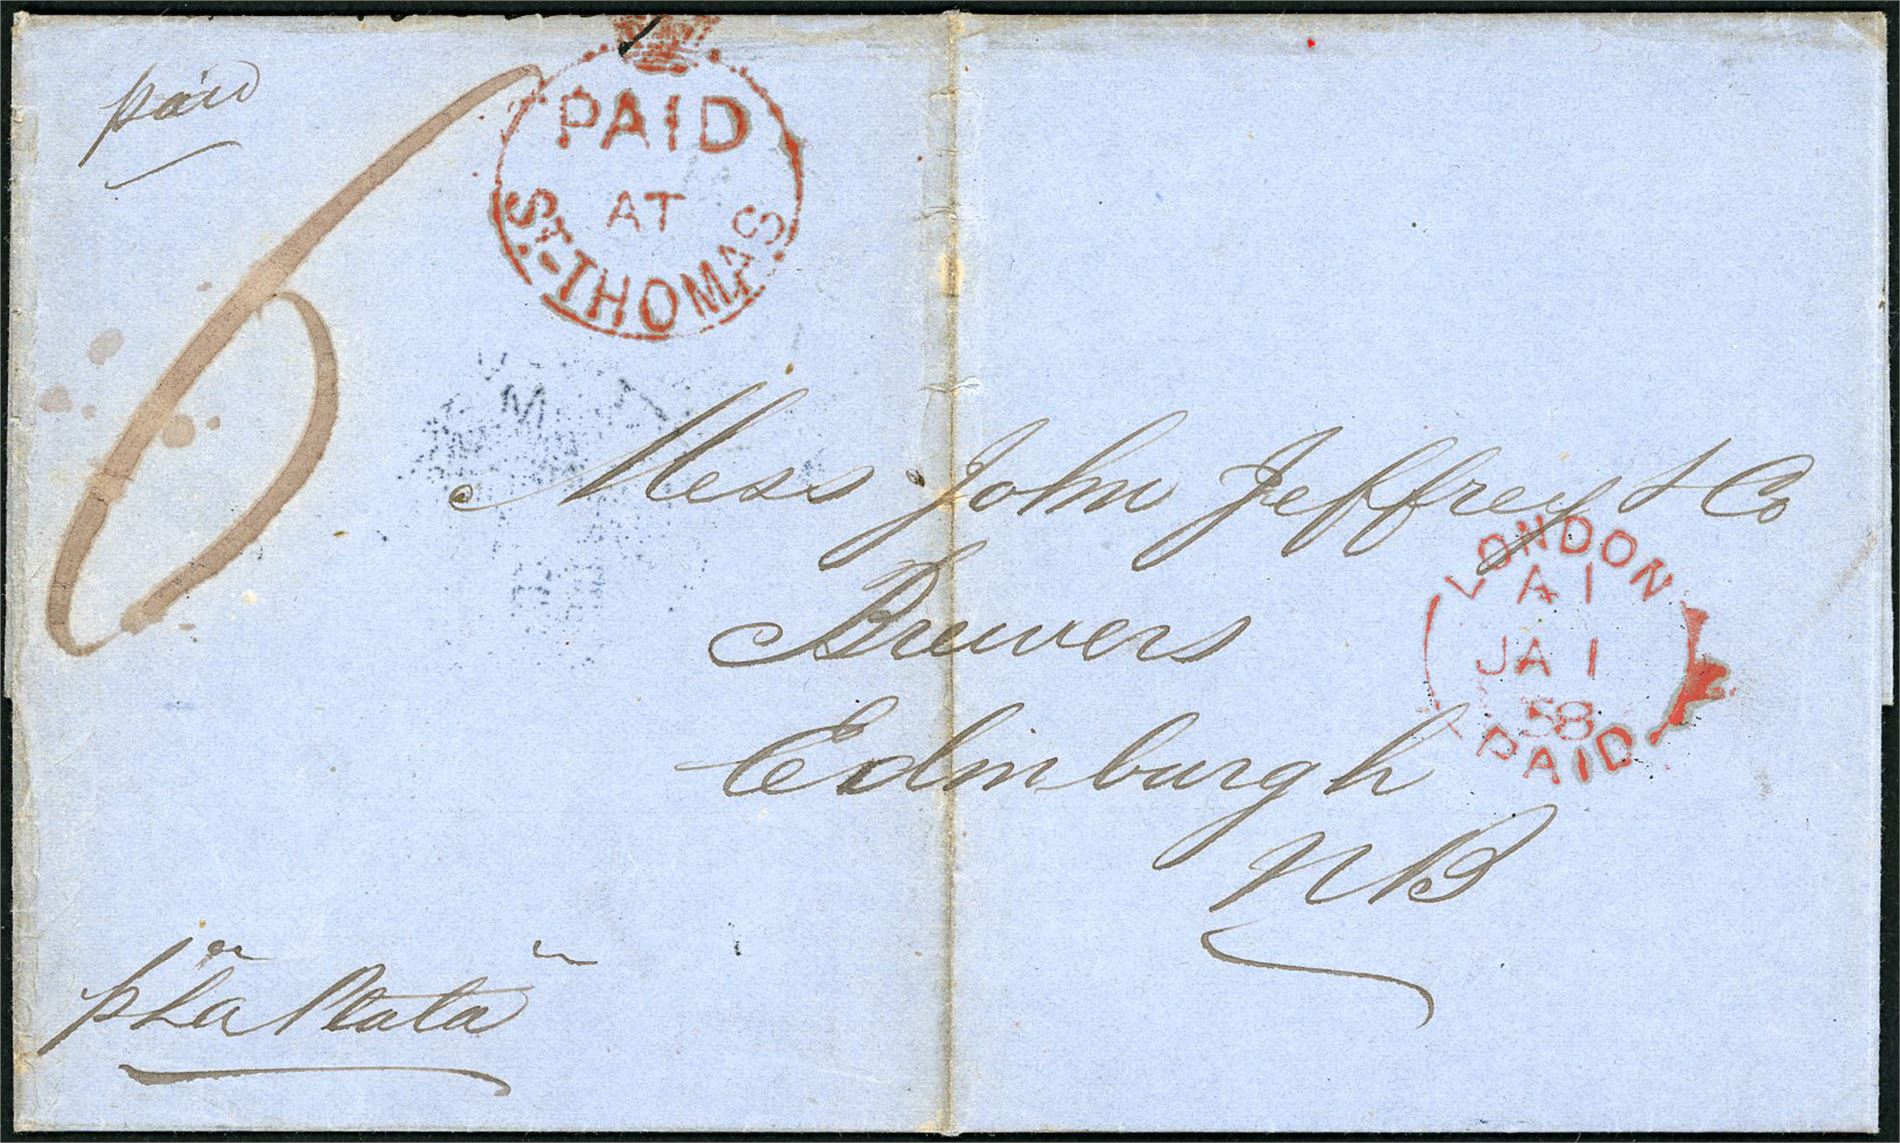 paid
6
PAID
AT
ST-THOMAS
Mess John Jeffrey & Co
Brewers
Edinburgh
NB
LONDON
A I
JA 1
58
PAID
p "La Plata"